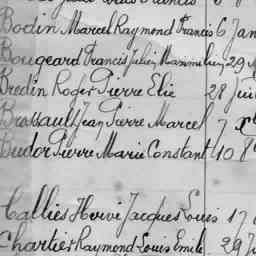 Bodin Marcel Raymond Francis 6 Jan
Bougeard Francis Julien Maximilien 29
Bredin Roger Pierre Elie 28 Juil
Brossault Jean Pierre Marcel 7 Xb
Budor Pierre Marie Constant 10 8
Calliès Hervé Jacques Louis 17
Chartier Raymond Louis Emile 29 Ju